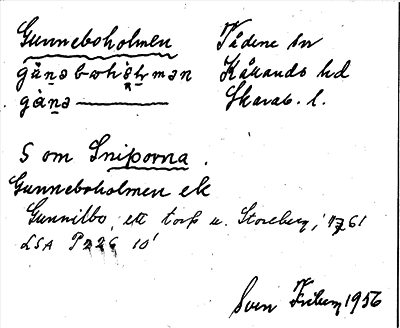 Gunneboholmen Tådene sn
Kållands hd
Skarab. l.
S om Sniporna.
Gunneboholmen ek
Gunnilbo, ett torp u. Storeberg, 1761
LSA P226 10¹
Sven Friberg 1956